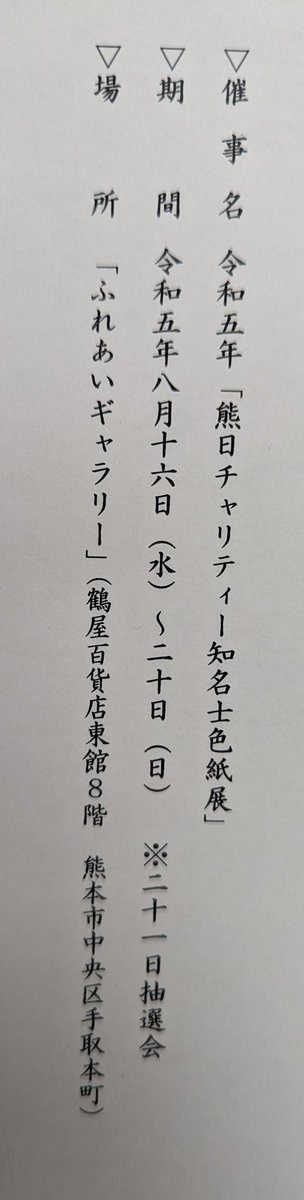 ▽催事名　令和五年「熊日チャリティー知名士色紙展」
▽期間　令和五年八月十六日（水）～二十日（日）　※二十一日抽選会
▽場所　「ふれあいギャラリー」（鶴屋百貨店東館８階　熊本市中央区手取本町）